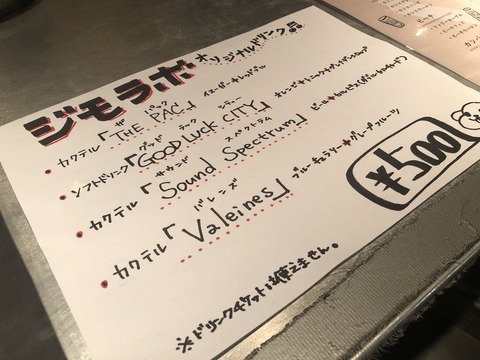 ジモラボ オリジナルドリンク♫
ザ パック
・カクテル「THE PAC」 イエーガー+レッドブル
グッド ラック シティー
・ソフトドリンク「GOOD LUCK CITY」
サウンド スペクトラム
・カクテル「Sound Spectrum」
バレンズ
・カクテル「Valeines」 ブルーキュラソー+グレープフルーツ
¥500
※ドリンクチケットは使えません。